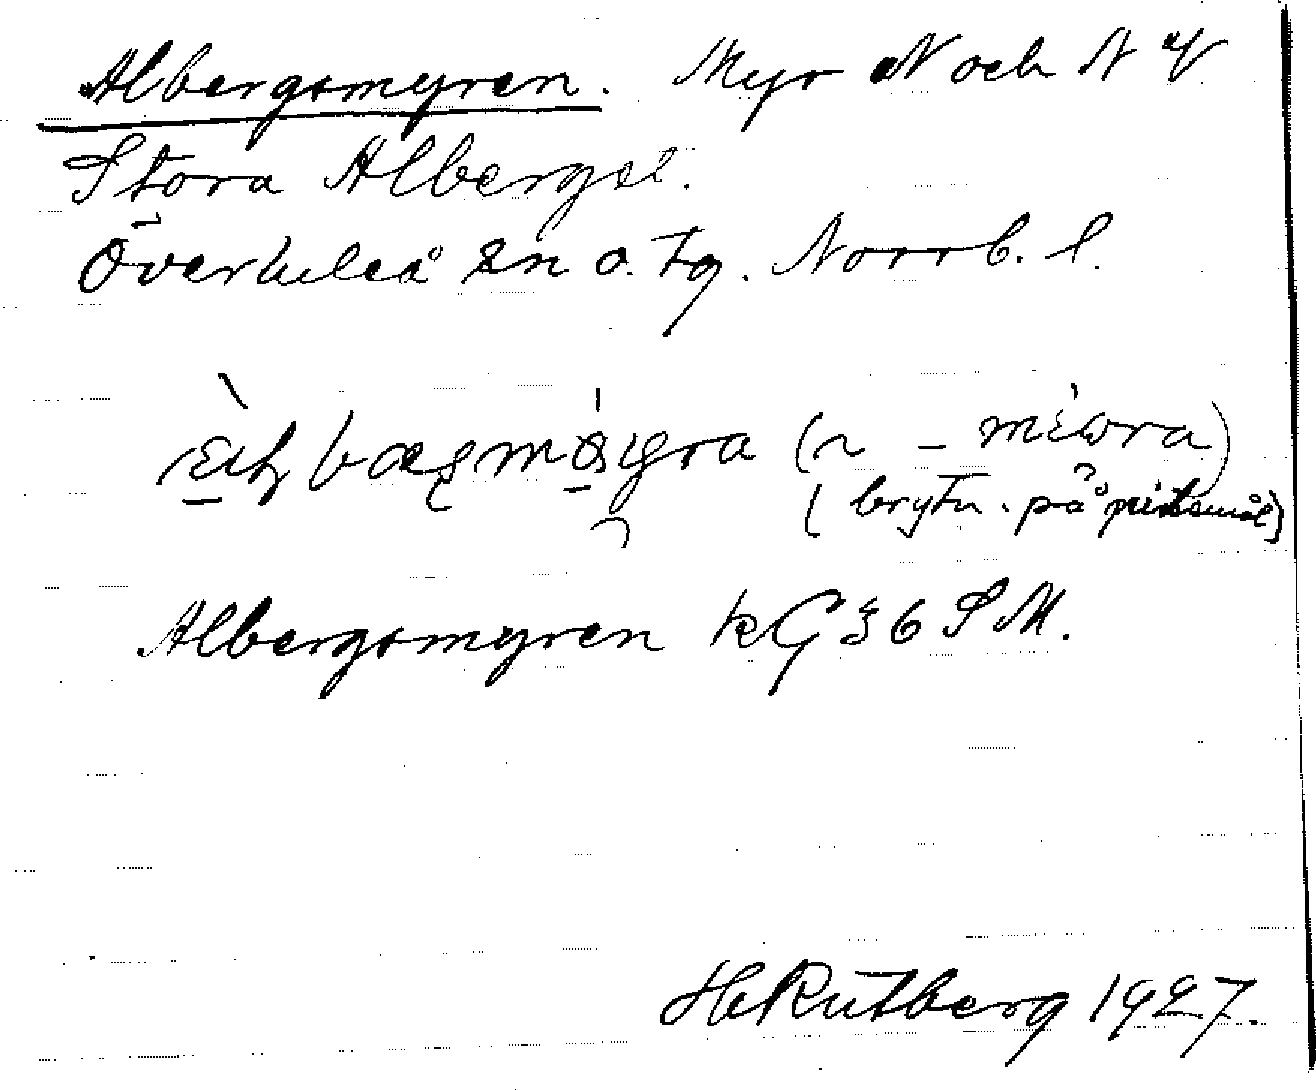 Albergsmyren. Myr N och NV
Stora Alberget.
Överluleå sn o. tg. Norrb. l.
(brytn. på pitemål)
Albergsmyren kG 36 SM.
H Rutberg 1927.